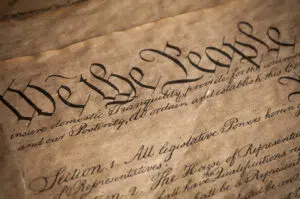 We the People
insure domestic Tranquility, provide for the com
and our Posterity, do ordain and establish this Co
Section 1. All legislative Powers herein
of Representatives.
Section 2. The House of Represent
have Qualifications
shall be a Represent